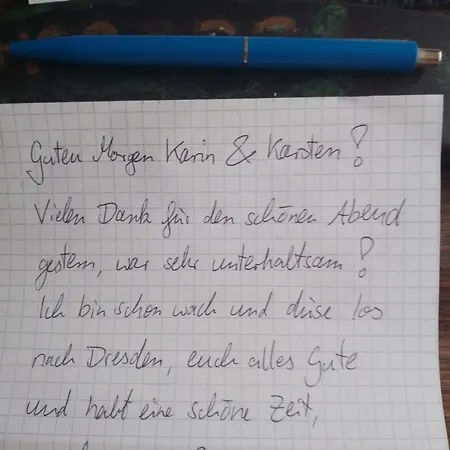 Guten Morgen Karin & Karsten!
Vielen Dank für den schönen Abend
gestern, war sehr unterhaltsam!
Ich bin schon wach und düse los
nach Dresden, euch alles Gute
und habt eine schöne Zeit,